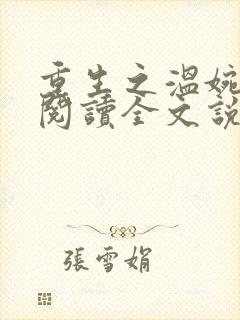 重生之溫婉
閱讀全文說
張雪娟